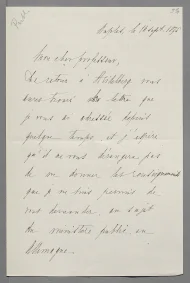 Naples, le 18 sept. 1895
Mon cher professeur,
De retour à Heidelberg vous
avez trouvé une lettre que
je vous ai adressée depuis
quelque temps, et j'espère
qu'il ne vous dérangera pas
de me donner les renseignements
que je me suis permis de
vous demander, au sujet
du ministère public en
Allemagne.